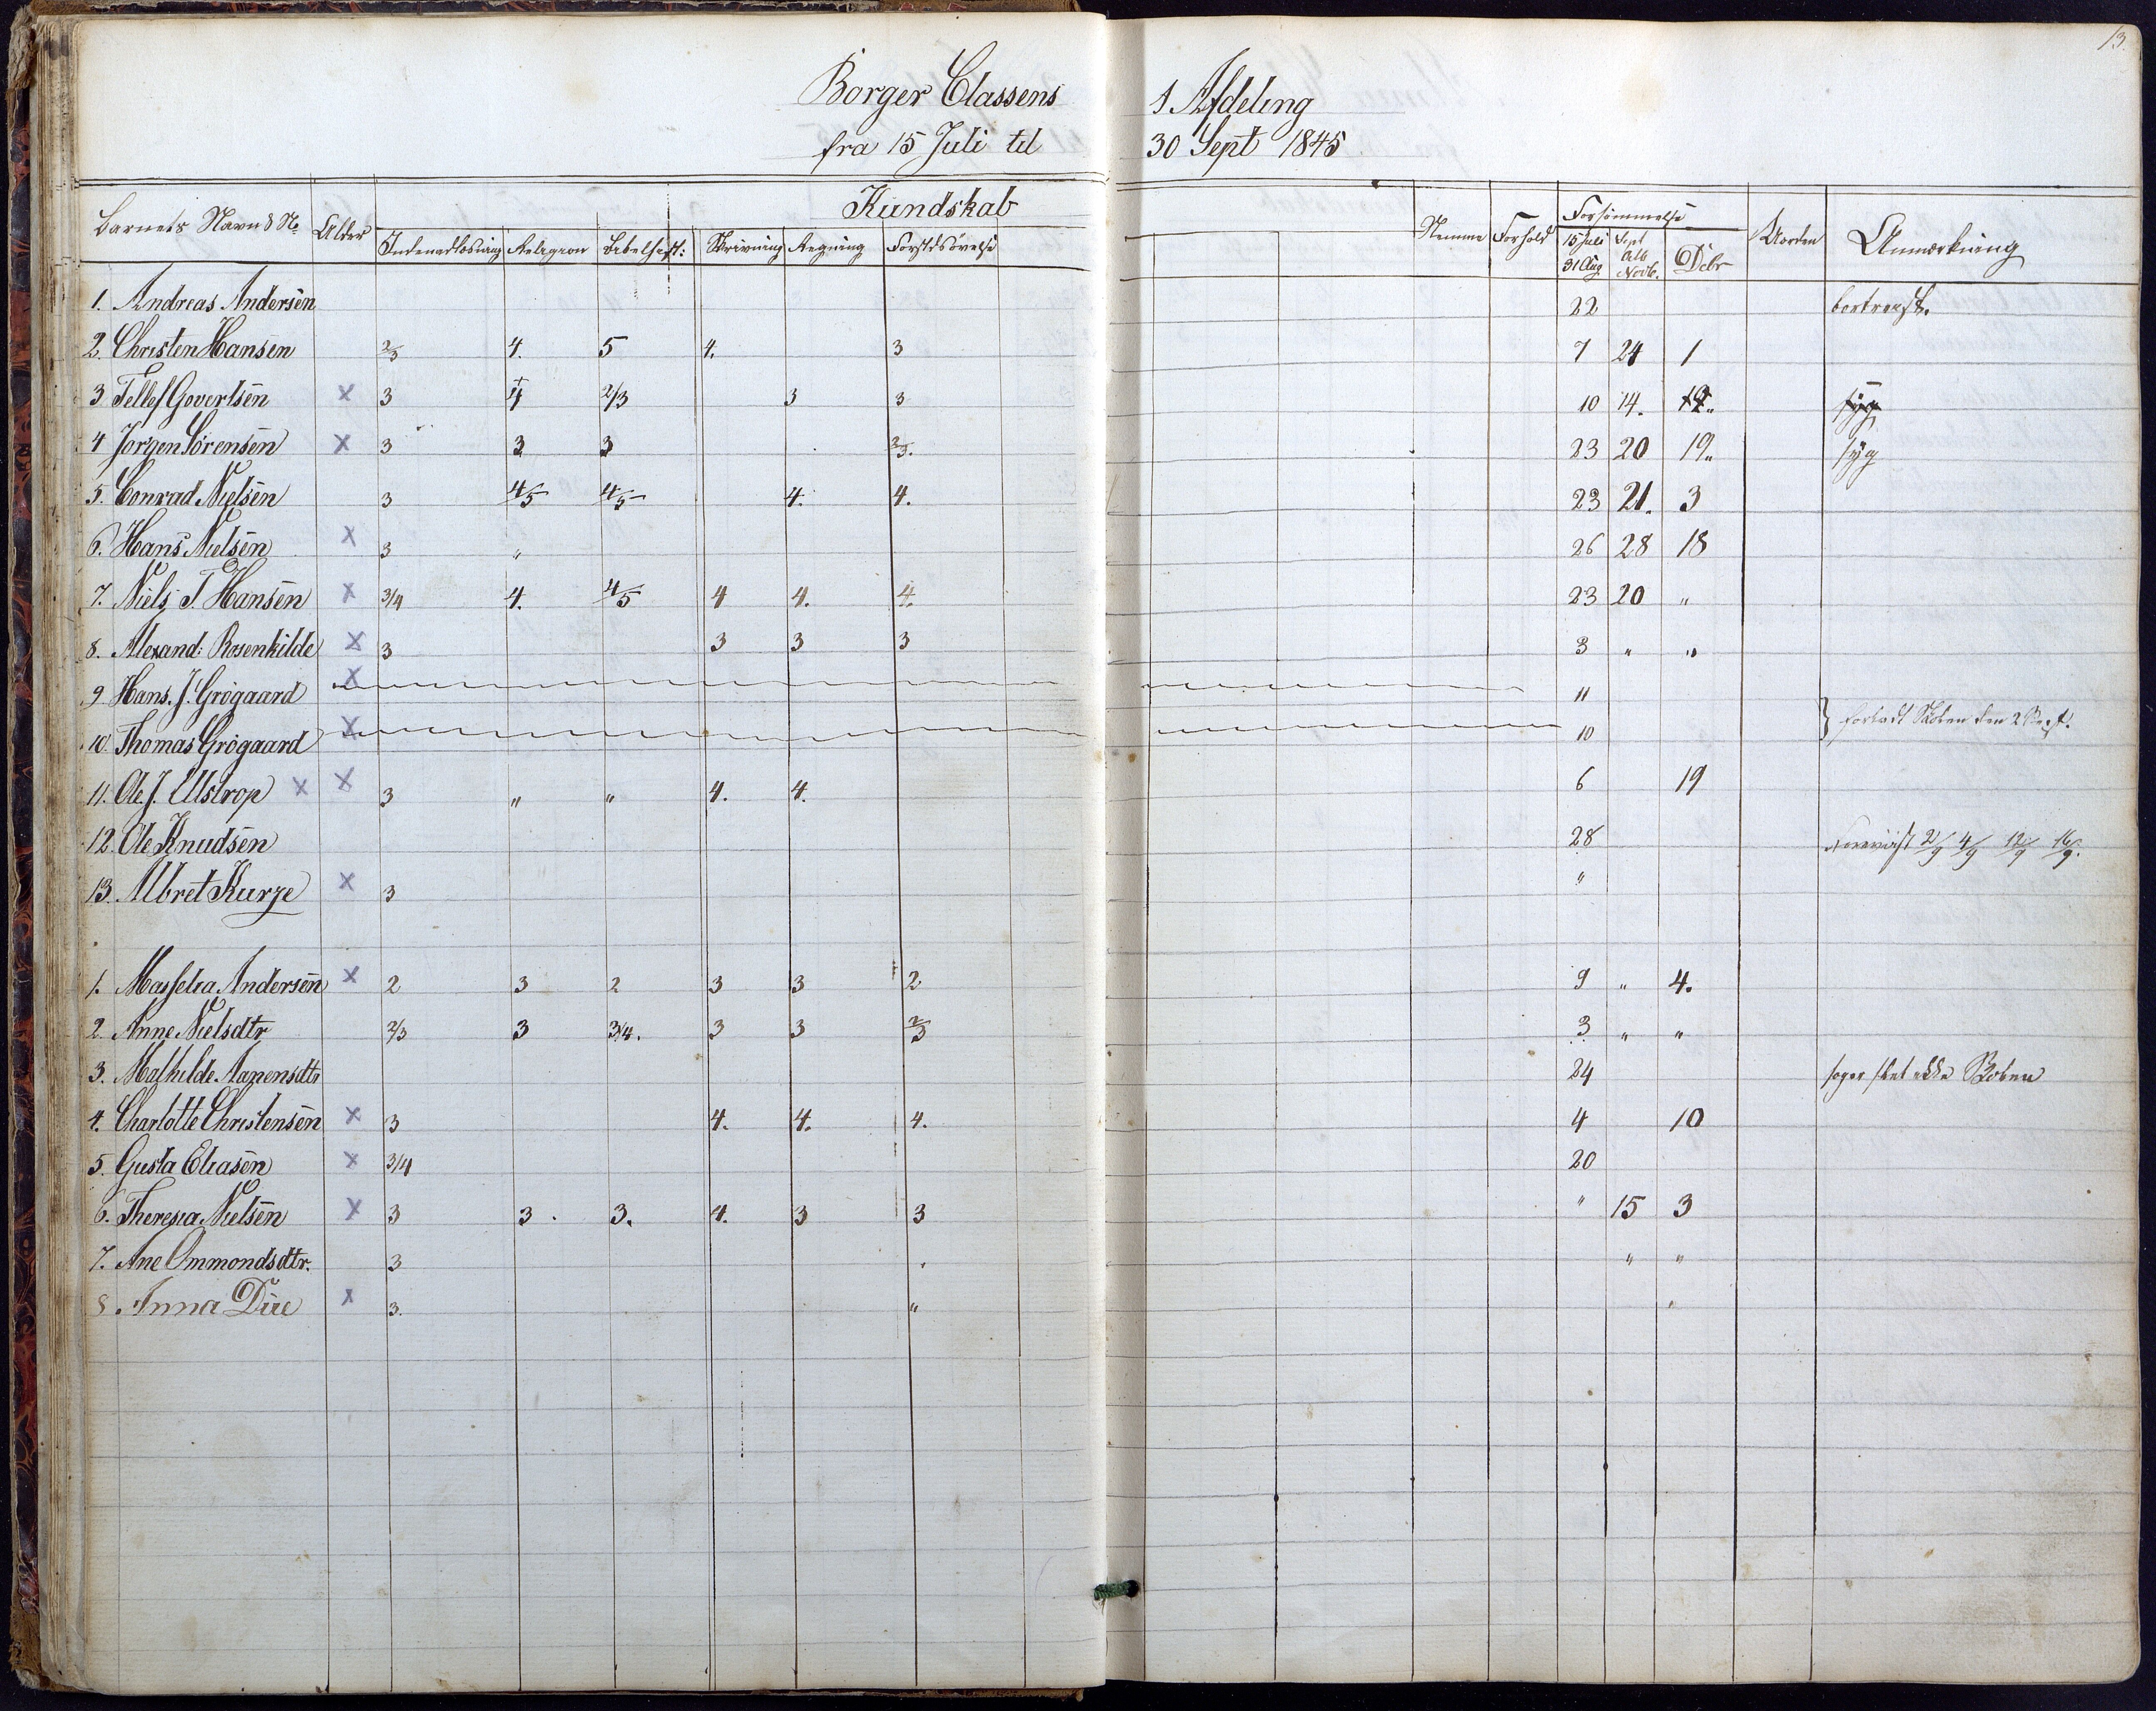 13.
Borger Classens 1 Afdeling
fra 15 Juli til 30 Sept 1845
Kundskab
Barnets Navn & No Alder Indenadlæsning Religion Bibelhist: Skrivning Regning Forstdsøvelse Nemme Forhold Forsømmelse 15 Juli 31 Aug Sept Novb. Debr Uorden Anmærkning
1. Andreas Andersen 22 bortreist.
2. Christen Hansen 2/3 4. 5 4. 3 7 24 1
3 Tellef Govertsen x 3 4 2/3 3 3 10 14. syg
4 Jørgen Sørensen x 3 3 3 2/3. 23 20 19 „ syg
5. Conrad Nielsen 3 4/5 4/5 4. 4. 23 21. 3
6. Hans Nielsen x 3 „ 26 28 18
7. Niels T. Hansen x 3/4 4. 4/5 4 4. 4. 23 20 „
8. Alexand: Rosenkilde x 3 3 3 3 3 „ „
9 Hans. J. Grøgaard x 11
10. Thomas Grøgaard x 10 } forladt Skolen den 2 Sept.
11. Ole J. Ulstrop x x 3 „ „ 4. 4. 6 19
12. Ole Knudsen 28 2/9 4/9 12/9 16/9.
13. Albret Kurze x 3 „
1. Masselia Andersen x 2 3 2 3 3 2 9 „ 4.
2. Anne Nielsdtr 2/3 3 3/4. 3 3 2/3 3 „ „
3. Mathilde Aanensdtr 24 søger slet ikke Skolen
4. Charlotte Christensen x 3 4. 4. 4. 4 10
5. Gusta Eliasen x 3/4 20
6. Theresia Nielsen x 3 3. 3. 4. 3 3 „ 15 3
7. Ane Ommondsdtr. 3 „ „
8. Anna Due x 3. „ „